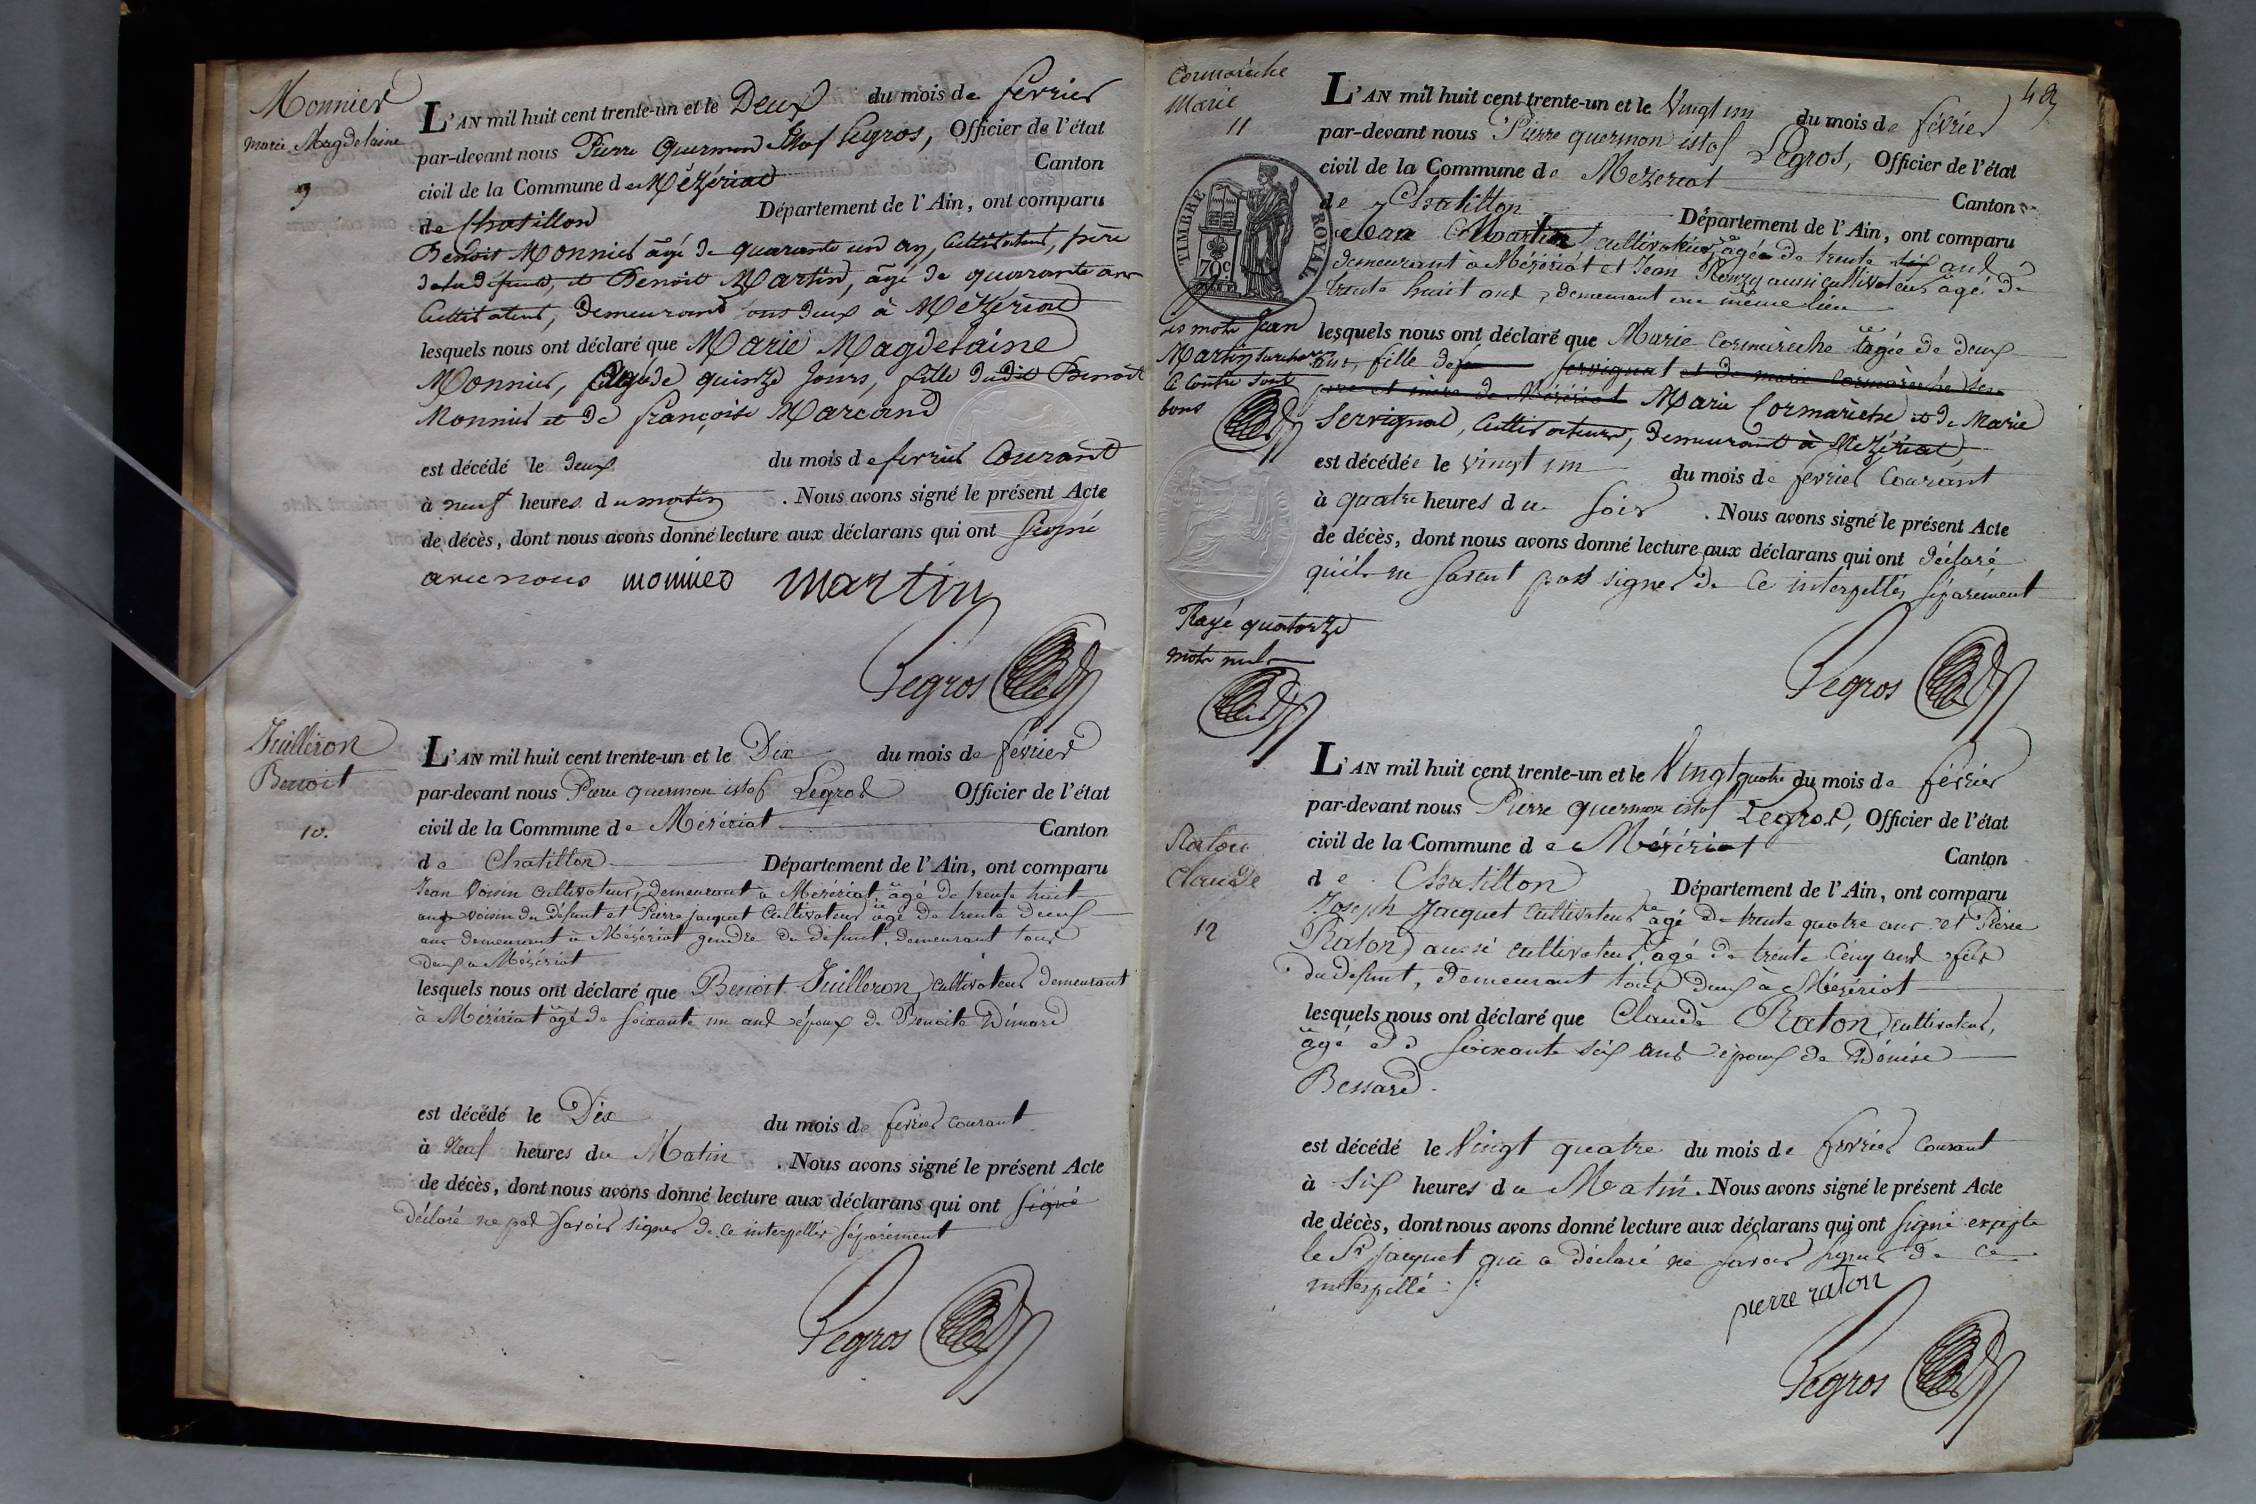 Monnier
marie Magdelaine
9
L'AN mil huit cent trente-un et le Deux du mois de fevrier
par-devant nous Pierre Quermon istof Legros, Officier de l'état
civil de la Commune de Mézériat Canton
de Chatillon Département de l'Ain, ont comparu
Benoit Monnier âgé de quarante un an, Cultivateur, père
de la défunte, et Benoit Martin, âgé de quarante ans
Cultivateur, demeurant tous deux à Mézériat
lesquels nous ont déclaré que Marie Magdelaine
Monnier, âgée de quinze jours, fille dudit Benoit
Monnier et de françoise Marcand
est décédé le deux du mois de fevrier Courant
à neuf heures du matin . Nous avons signé le présent Acte
de décès, dont nous avons donné lecture aux déclarans qui ont signé
avec nous monnier martin
Legros
Juilleron
Benoit
10.
L'AN mil huit cent trente-un et le Dix du mois de fevrier
par-devant nous Pierre quermon istof Legros Officier de l'état
civil de la Commune de Mézériat Canton
de Chatillon Département de l'Ain, ont comparu
Jean Voisin cultivateur, demeurant à Mézériat âgé de trente huit
ans voisin du défunt et Pierre jacquet Cultivateur âgé de trente deux
ans demeurant à Mézériat gendre du défunt, demeurant tous
deux à Mézériat
lesquels nous ont déclaré que Benoit Juilleron, cultivateur demeurant
à Mézériat âgé de soixante un ans époux de Benoite
est décédé le Dix du mois de fevrier courant
à Neuf heures du Matin . Nous avons signé le présent Acte
de décès, dont nous avons donné lecture aux déclarans qui ont signé
déclaré ne pas savoir signer de ce interpellés séparément
Legros
Cormarèche
Marie
11
L'AN mil huit cent trente-un et le Vingt un du mois de février
par-devant nous Pierre quermon istof Legros, Officier de l'état
civil de la Commune de Mézériat Canton
de Chatillon Département de l'Ain, ont comparu
TIMBRE ROYAL
70c
Jean Martin cultivateur, âgé de trente six ans
demeurant à Mézériat et Jean aussi cultivateur âgé de
trente huit ans, demeurant au même lieu
les mots Jean
Martin surcharge
Ci contre sont
bons
lesquels nous ont déclaré que Marie Cormarèche âgée de deux
ans, fille de servignat et de marie Cormarèche ses
père et mère de Mézériat Marie Cormarèche et de Marie
Servignat, Cultivateurs, demeurant à Mézériat,
est décédée le vingt un du mois de fevrier Courant
à quatre heures du soir . Nous avons signé le présent Acte
de décès, dont nous avons donné lecture aux déclarans qui ont déclaré
qu'ils ne savent pas signer de ce interpellés séparément
Rayé quatorze
mots nuls
Legros
Raton
Claude
12
L'AN mil huit cent trente-un et le Vingt quatre du mois de février
par-devant nous Pierre quermon istof Legros, Officier de l'état
civil de la Commune de Mézériat Canton
de Chatillon Département de l'Ain, ont comparu
Joseph Jacquet cultivateur âgé de trente quatre ans et Pierre
Raton aussi cultivateur, âgé de trente cinq ans fils
du défunt, demeurant tous deux à Mézériat
lesquels nous ont déclaré que Claude Raton, cultivateur,
âgé de soixante six ans époux de Dénise
Bessard.
est décédé le Vingt quatre du mois de fevrier Courant
à six heures du Matin. Nous avons signé le présent Acte
de décès, dont nous avons donné lecture aux déclarans qui ont signé excepte
le Sr jacquet qui a déclaré ne savoir signer de ce
interpellé
pierre raton
Legros